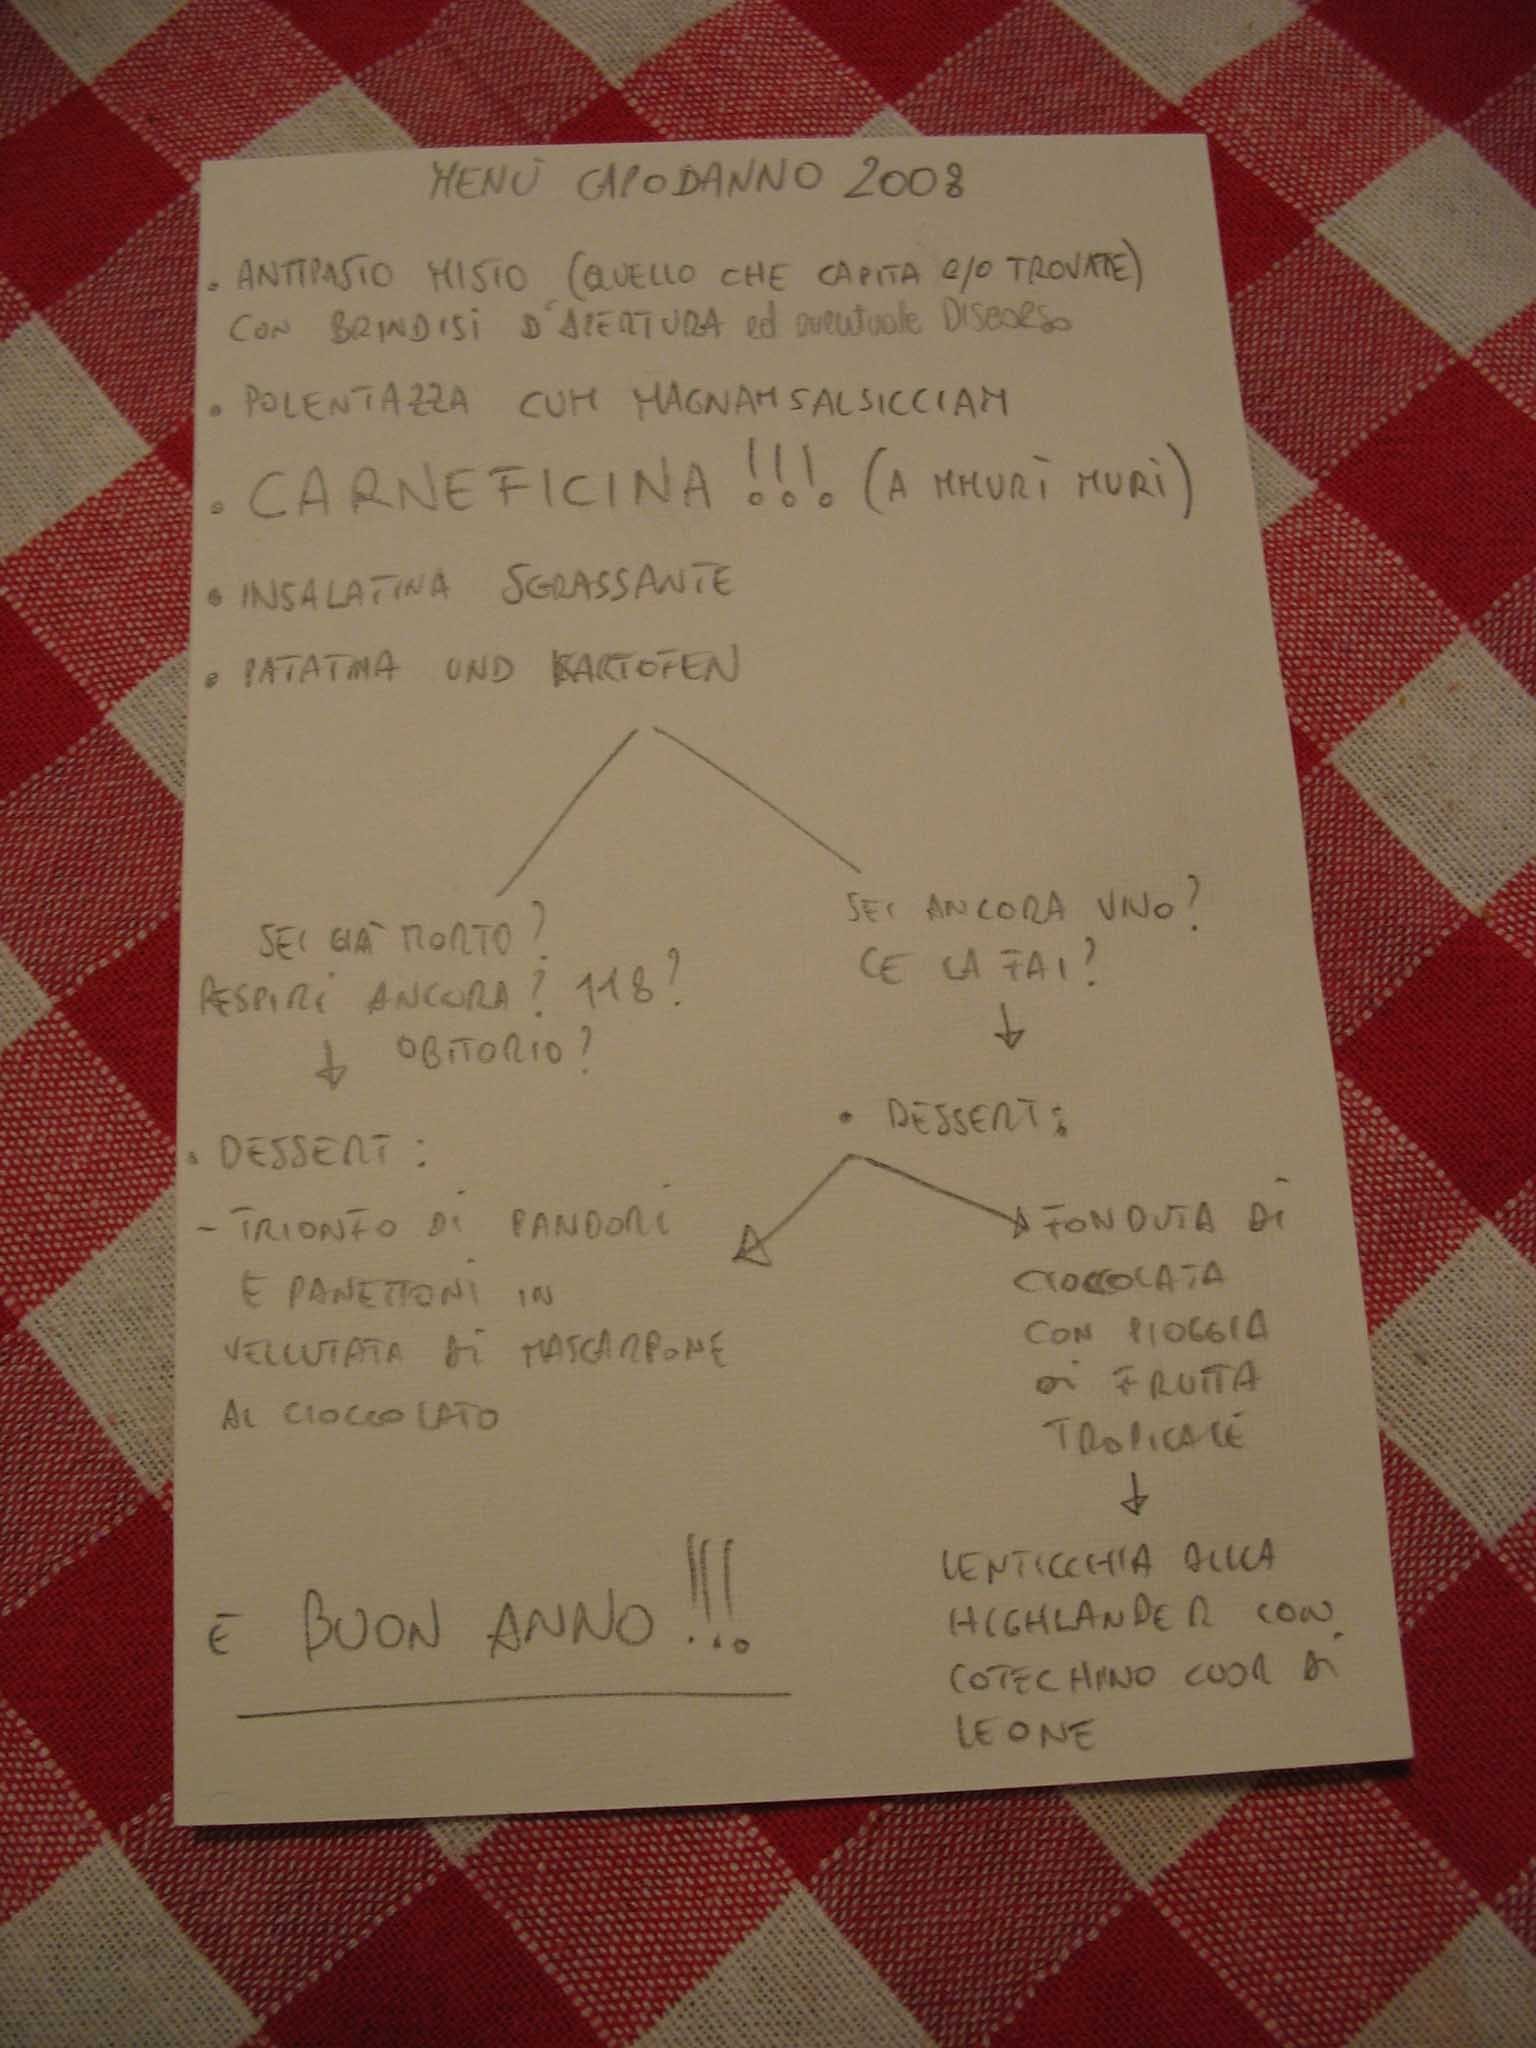 MENÙ CAPODANNO 2008
• ANTIPASTO MISTO (QUELLO CHE CAPITA e/o TROVATE)
CON BRINDISI D'APERTURA ed eventuale Discorso
• POLENTAZZA CUM MAGNAM SALSICCIAM
• CARNEFICINA!!! (A MMURÌ MURÌ)
• INSALATINA SGRASSANTE
• PATATINA UND KARTOFEN
SEI GIÀ MORTO?
RESPIRI ANCORA? 118?
OBITORIO?
• DESSERT:
- TRIONFO DI PANDORI
E PANETTONI IN
VELLUTATA DI MASCARPONE
AL CIOCCOLATO
SEI ANCORA VIVO?
CE LA FAI?
• DESSERT:
FONDUTA DI
CIOCCOLATA
CON PIOGGIA
DI FRUTTA
TROPICALE
LENTICCHIA ALLA
HIGHLANDER CON
COTECHINO CUOR DI
LEONE
E BUON ANNO!!!